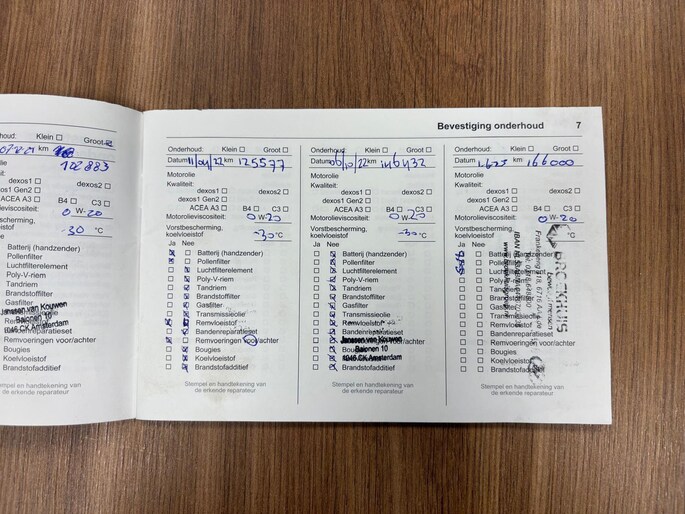 Bevestiging onderhoud 7
houd: Klein Groot
km
122883
dexos1
dexos2
dexos1 Gen2
ACEA A3 B4 C3
0 W-20
-30 °C
Batterij (handzender)
Pollenfilter
Luchtfilterelement
Poly-V-riem
Tandriem
Brandstoffilter
Gasfilter
Janssen van Kouwen
Baionen 10
1046 CK Amsterdam
Bandenreparatieset
Remvoeringen voor/achter
Bougies
Koelvloeistof
Brandstofadditief
Stempel en handtekening van
de erkende reparateur
Onderhoud: Klein Groot
Datum 11/04/22 km 125577
Motorolie
Kwaliteit:
dexos1 dexos2
dexos1 Gen2
ACEA A3 B4 C3
Motorolieviscositeit: 0 W-20
Vorstbescherming,
koelvloeistof -30 °C
Ja Nee
Batterij (handzender)
Pollenfilter
Luchtfilterelement
Poly-V-riem
Tandriem
Brandstoffilter
Gasfilter
Transmissieolie
Remvloeistof
Bandenreparatieset
Remvoeringen voor/achter
Bougies
Koelvloeistof
Brandstofadditief
Stempel en handtekening van
de erkende reparateur
Onderhoud: Klein Groot
Datum 06/10/22 km 146432
Motorolie
Kwaliteit:
dexos1 dexos2
dexos1 Gen2
ACEA A3 B4 C3
Motorolieviscositeit: 0 W-20
Vorstbescherming,
koelvloeistof -30 °C
Ja Nee
Batterij (handzender)
Pollenfilter
Luchtfilterelement
Poly-V-riem
Tandriem
Brandstoffilter
Gasfilter
Transmissieolie
Remvloeistof
Bandenreparatieset
Janssen van Kouwen
Baionen 10
1046 CK Amsterdam
Bougies
Koelvloeistof
Brandstofadditief
Stempel en handtekening van
de erkende reparateur
Onderhoud: Klein Groot
Datum km 166000
Motorolie
Kwaliteit:
dexos1 dexos2
dexos1 Gen2
ACEA A3 B4 C3
Motorolieviscositeit: 0 W-20
Vorstbescherming,
koelvloeistof °C
Ja Nee
Batterij (handzender)
Pollenfilter
Luchtfilterelement
Poly-V-riem
Tandriem
Brandstoffilter
Gasfilter
Transmissieolie
Remvloeistof
Bandenreparatieset
Remvoeringen voor/achter
Bougies
Koelvloeistof
Brandstofadditief
Stempel en handtekening van
de erkende reparateur